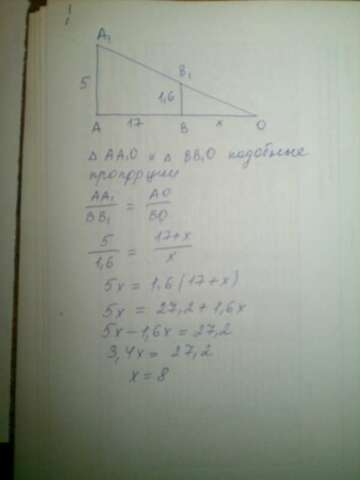 A₁
B₁
5
1,6
A 17 B x O
Δ AA₁O и Δ BB₁O подобные
AA₁/BB₁ = AO/BO
5/1,6 = 17+x/x
5x = 1,6 (17+x)
5x = 27,2+1,6x
5x-1,6x = 27,2
3,4x = 27,2
x = 8